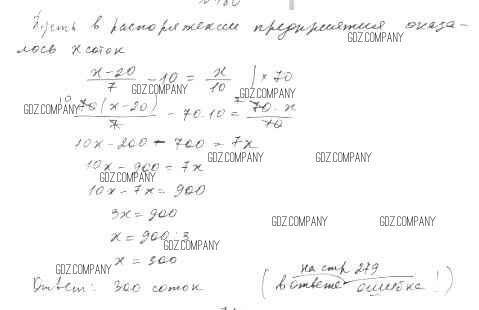 Пусть в распоряжении предприятия оказа-
лось x соток
GDZ.COMPANY
(x-20)/7 - 10 = x/10 | × 70
GDZ.COMPANY GDZ.COMPANY
10 70(x-20)/7 - 70·10 = 7 70·x/10
GDZ.COMPANY
10x - 200 - 700 = 7x
GDZ.COMPANY GDZ.COMPANY
10x - 900 = 7x
GDZ.COMPANY
10x - 7x = 900
3x = 900
GDZ.COMPANY GDZ.COMPANY
x = 900 : 3
GDZ.COMPANY
x = 300
GDZ.COMPANY
Ответ: 300 соток (на стр 279
в ответе ошибка!)